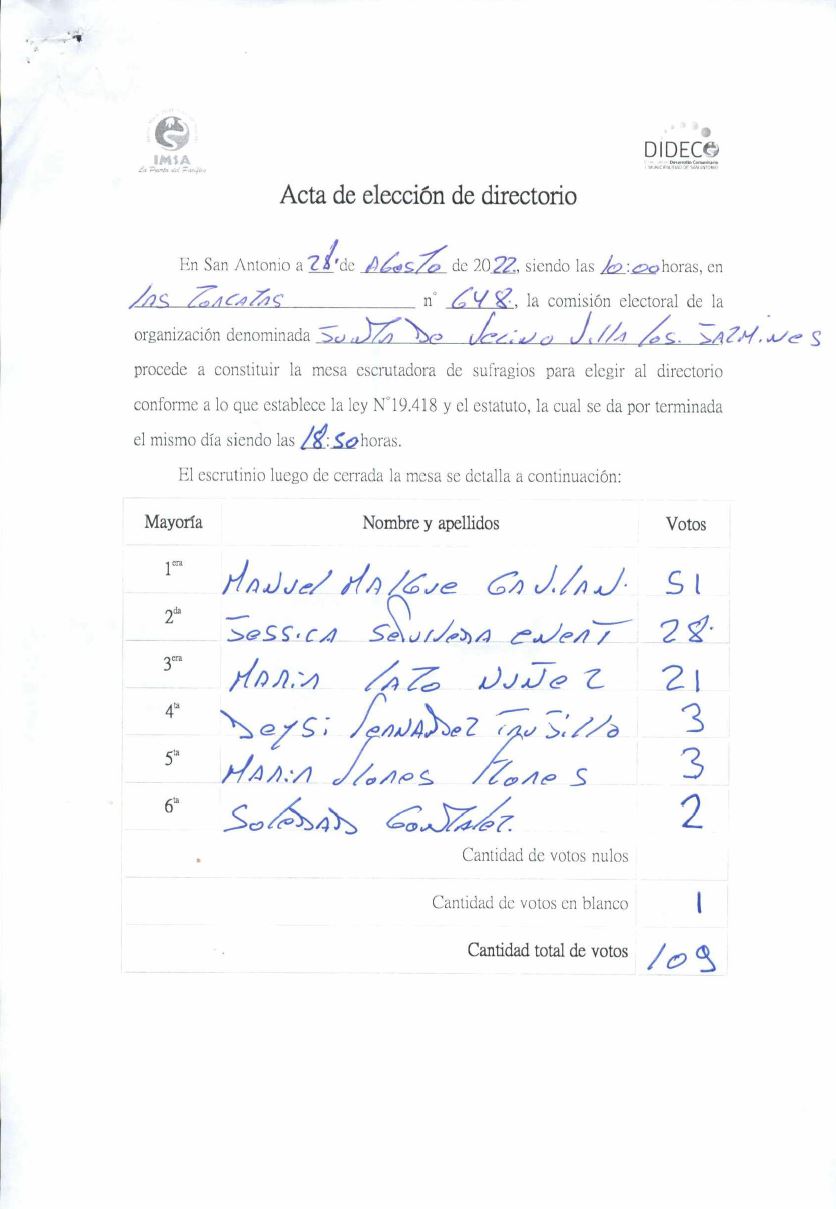 IMSA
La Puerta del Pacífico
DIDECO
Desarrollo Comunitario
I. MUNICIPALIDAD DE SAN ANTONIO
Acta de elección de directorio
En San Antonio a 28 de Agosto de 2022, siendo las 10:00 horas, en
las Torcazas n° 648, la comisión electoral de la
organización denominada Junta De Vecino Villa los Jazmines
procede a constituir la mesa escrutadora de sufragios para elegir al directorio
conforme a lo que establece la ley N°19.418 y el estatuto, la cual se da por terminada
el mismo día siendo las 18:50 horas.
El escrutinio luego de cerrada la mesa se detalla a continuación:
Mayoría Nombre y apellidos Votos
1era Manuel Malgue Gavilan. 51
2da Jessica 28
3era Maria Lazo Nuñez 21
4ta Deysi Fernandez 3
5ta Maria Flores Flores 3
6ta Soledad Gonzalez. 2
Cantidad de votos nulos
Cantidad de votos en blanco 1
Cantidad total de votos 109